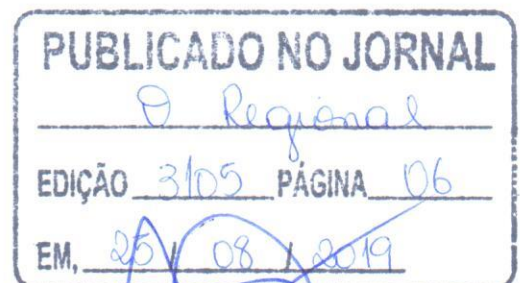 PUBLICADO NO JORNAL
O Regional
EDIÇÃO 3105 PÁGINA 06
EM, 25 / 08 / 2019